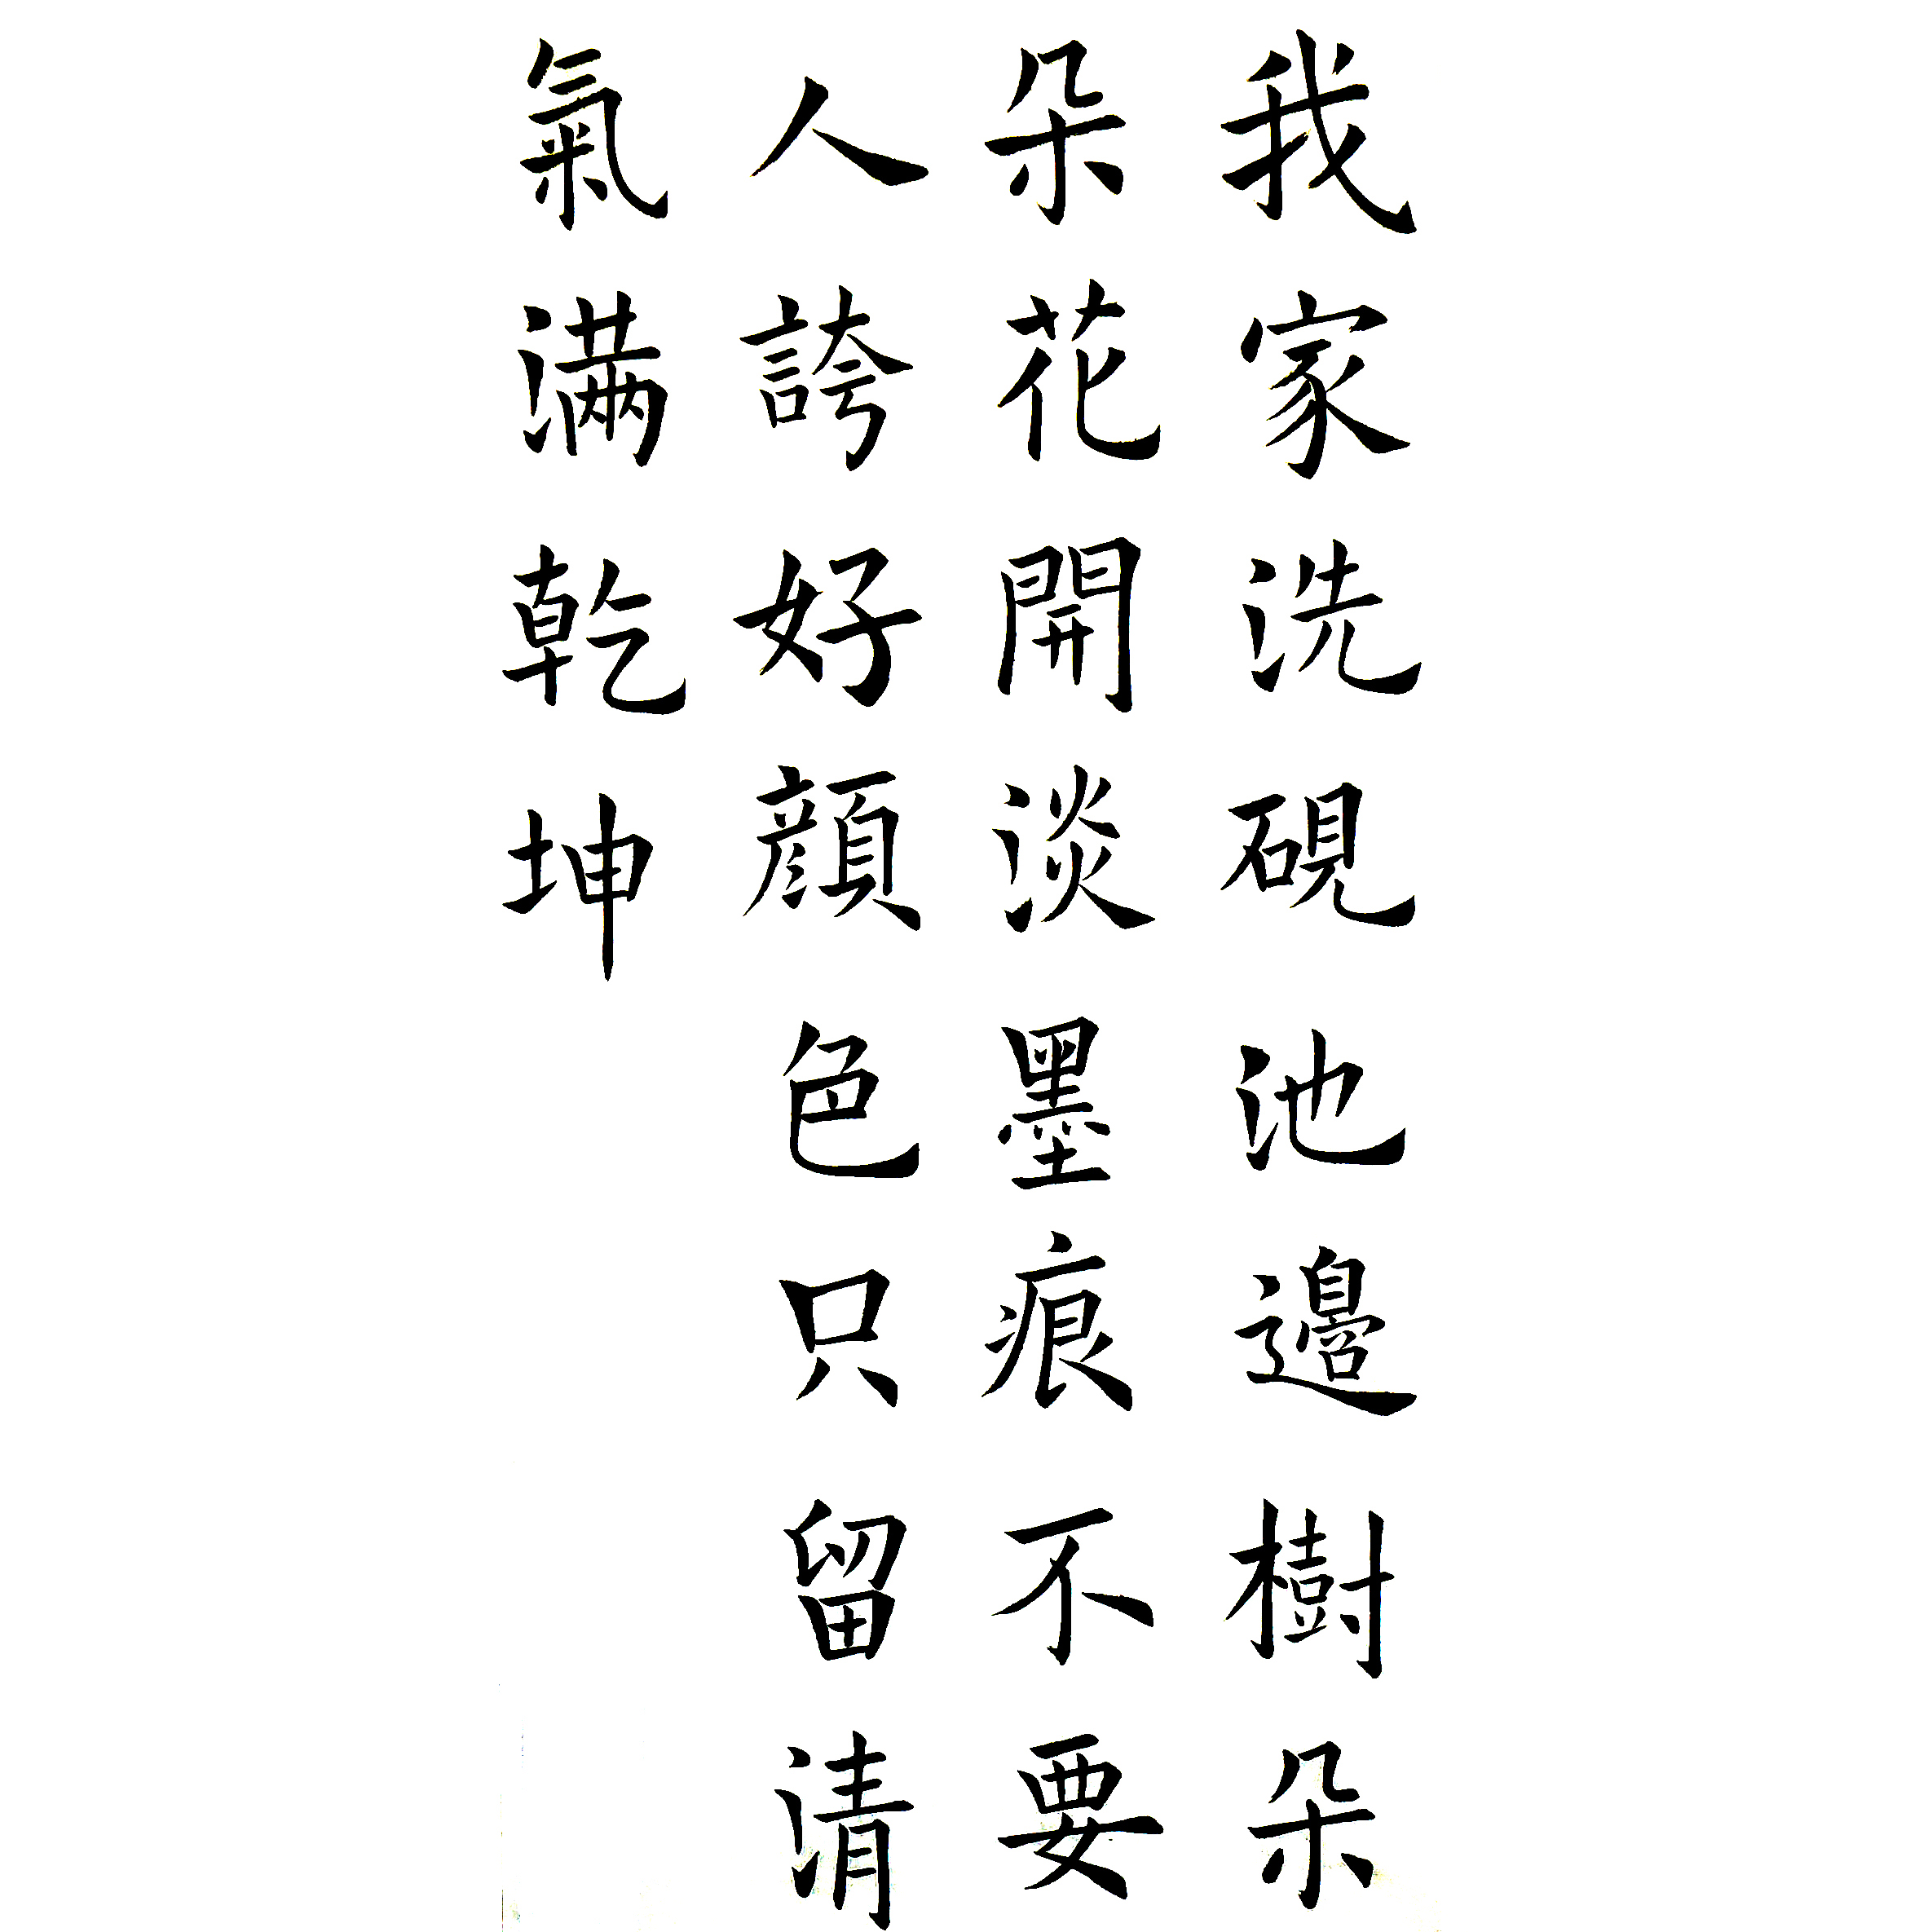 我家洗硯池邊樹朵
朵花開淡墨痕不要
人誇好顔色只留清
氣滿乾坤